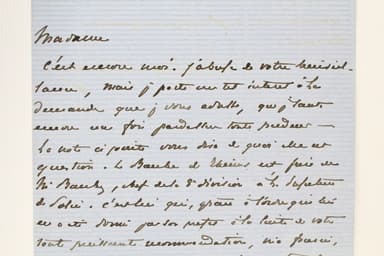 Madame
C'est encore moi. J'abuse de votre bienveil-
lance, mais j'porte un tel intérêt à la
demande que j'vous adresse, que j'saute
encore une fois pardessus toute pudeur —
La note ci jointe vous dira de quoi elle est
question. Le Bauche de est frère de
Mr Bauche, chef de la 2e division à la Préfecture
de Police. C'est lui qui, grâce à l'ordre qui lui
en a été donné par son préfet à la suite de votre
toute puissante recommandation, m'a